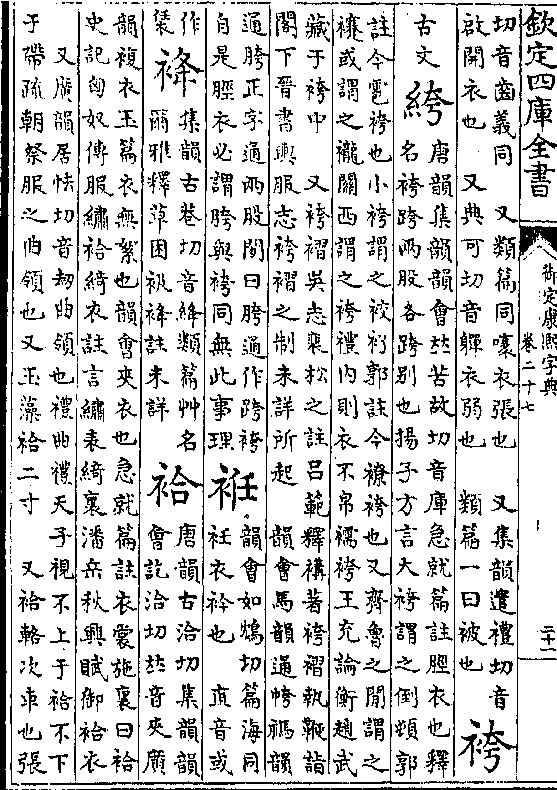 欽定四庫全書
御定康熙字典
卷二十七
二十二
切音齒義同　又類篇同㩙衣張也　又集韻遣禮切音
啟開衣也　又典可切音嚲衣弱也　類篇一曰被也　袴
古文　絝　唐韻集韻韻會𠀤苦故切音庫急就篇註脛衣也釋
名袴跨兩股各跨別也揚子方言大袴謂之倒頓郭
註今雹袴也小袴謂之䘨衳郭註今𧝋袴也又齊魯之間謂之
襱或謂之襱關西謂之袴禮內則衣不帛襦袴王充論衡趙武
藏于袴中　又袴褶吳志裴松之註呂範釋褠著袴褶執鞭詣
閣下晉書輿服志袴褶之制未詳所起　韻會禡韻通𢃖䙤韻
通胯正字通兩股間曰胯通作跨袴
自是脛衣必謂胯與袴同無此事理　袵　韻會如鴆切篇海同
衽衣衿也　直音或
作𧛡　袶　集韻古巷切音絳類篇艸名
爾雅釋草困衱袶註未詳　袷　唐韻古洽切集韻韻
會訖洽切𠀤音夾廣
韻複衣玉篇衣無絮也韻會夾衣也急就篇註衣裳施裏曰袷
史記匈奴傳服繡袷綺衣註言繡表綺裏潘岳秋興賦御袷衣
又廣韻居怯切音刼曲領也禮曲禮天子視不上于袷不下
于帶疏朝祭服之曲領也又玉藻袷二寸　又袷輅次車也張